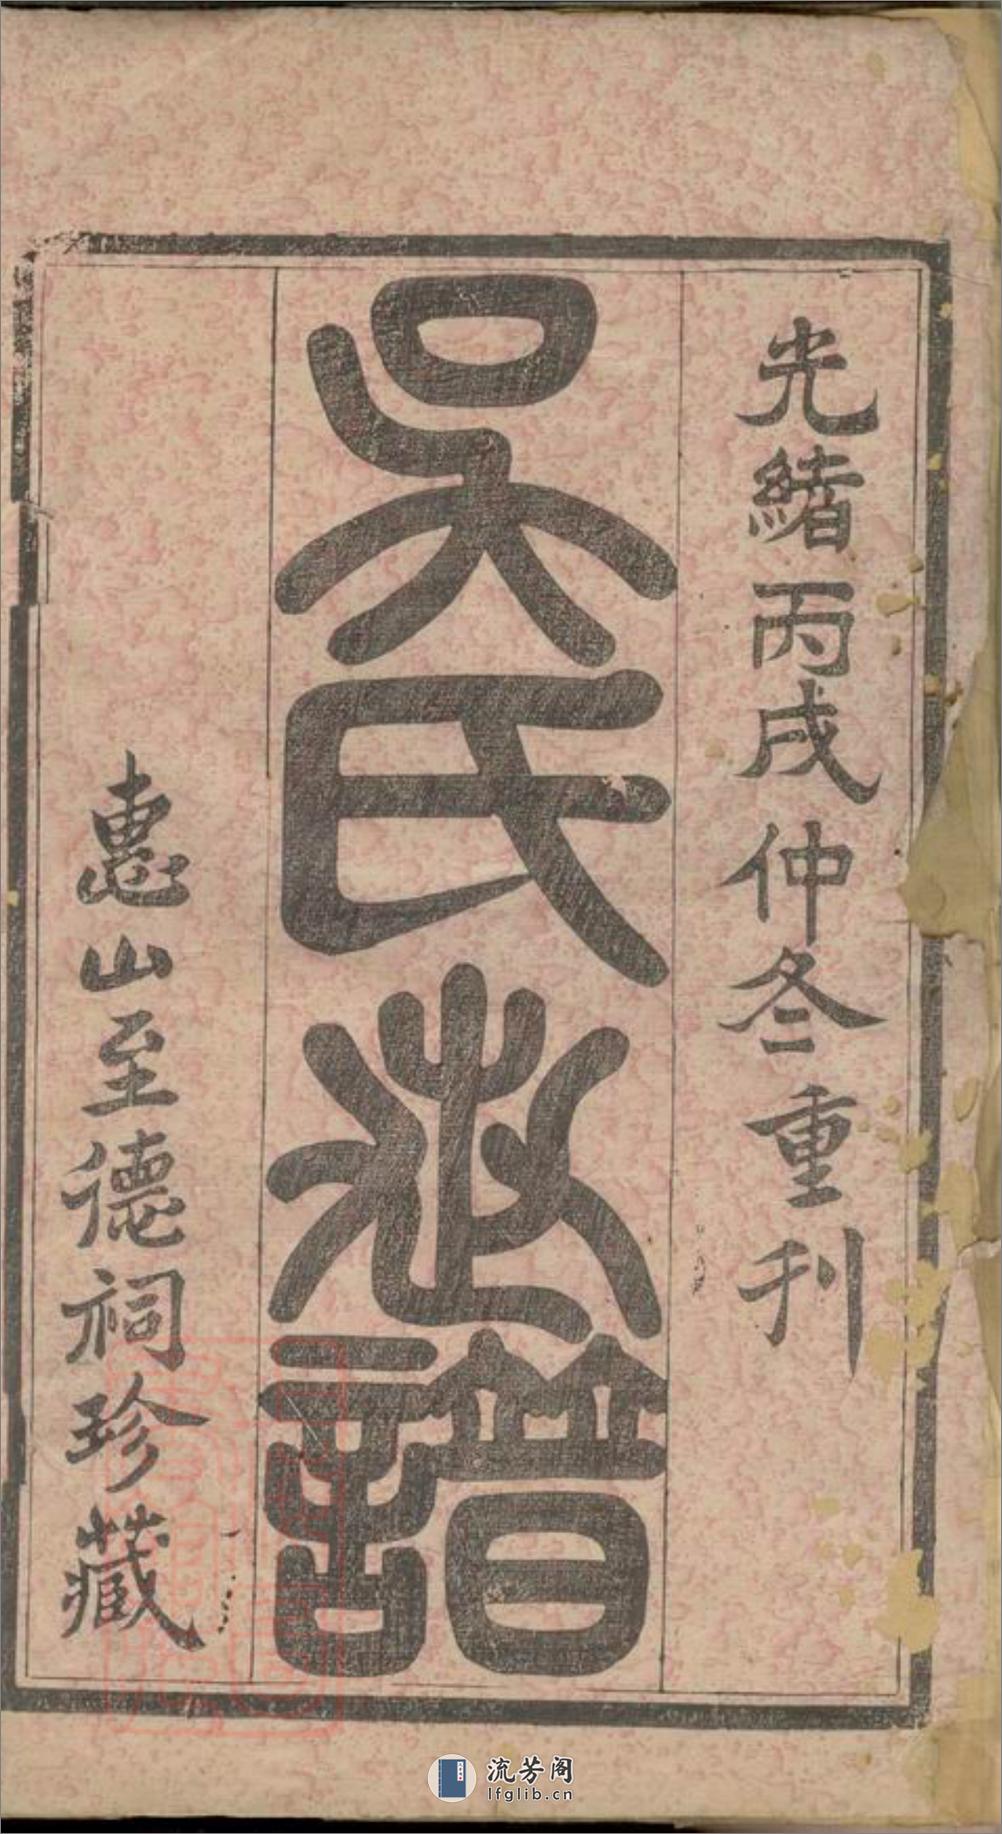 光緒丙戌仲冬重刊
吳氏譜
惠山至德祠珍藏
流芳阁
lfglib.cn